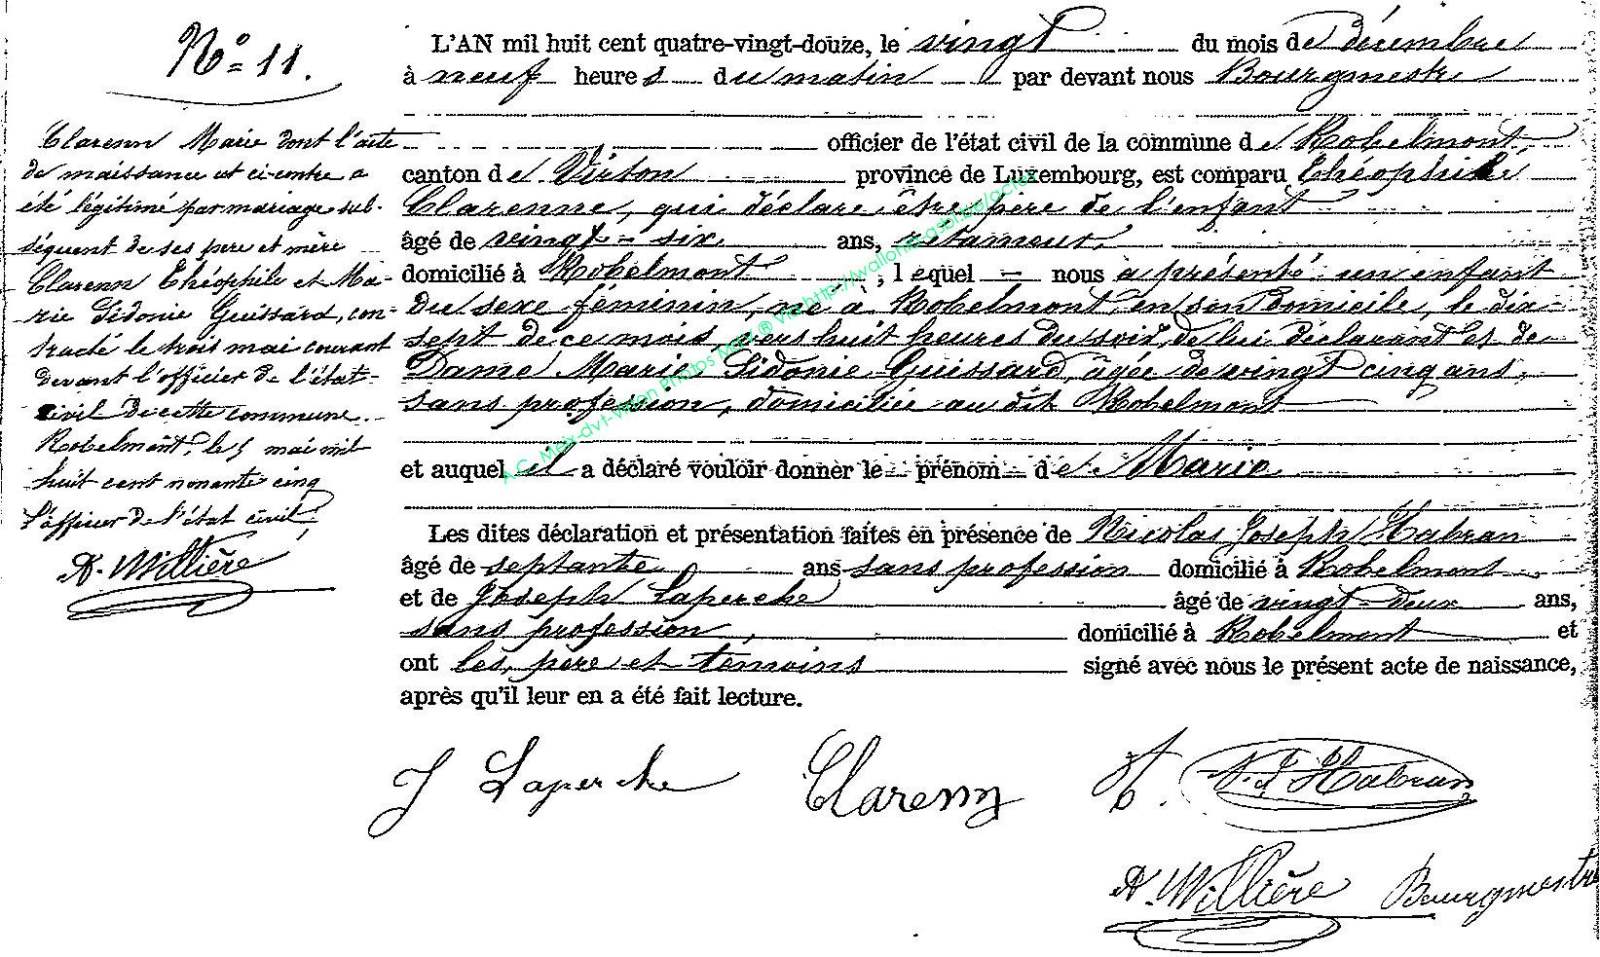 N° 11.
Clarenn Marie dont l'acte
de naissance est ci-contre a
été légitimé par mariage sub-
séquent de ses père et mère
Clarenn Théophile et Ma-
rie Sidonie Guissard, con-
tracté le trois mai courant
devant l'officier de l'état-
civil de cette commune.
Robelmont, le 5 mai mil
huit cent nonante cinq
L'officier de l'état civil
A. Willière
L'AN mil huit cent quatre-vingt-douze, le vingt du mois de décembre
à neuf heures du matin par devant nous Bourgmestre
officier de l'état civil de la commune de Robelmont,
canton de Virton province de Luxembourg, est comparu Théophile
Clarenne, qui déclare être père de l'enfant
âgé de vingt-six ans, rétameur,
domicilié à Robelmont, lequel nous a présenté un enfant
du sexe féminin, né à Robelmont, en son domicile, le dix-
sept de ce mois, vers huit heures du soir, de lui déclarant et de
Dame Marie Sidonie Guissard, âgée de vingt cinq ans,
sans profession, domiciliée au dit Robelmont
et auquel il a déclaré vouloir donner le prénom de Marie
Les dites déclaration et présentation faites en présence de Nicolas Joseph Habran
âgé de septante ans sans profession domicilié à Robelmont
et de Joseph Laperche âgé de vingt-deux ans,
sans profession, domicilié à Robelmont et
ont les père et témoins signé avec nous le présent acte de naissance,
après qu'il leur en a été fait lecture.
J Laperche Clarenn T. N. J Habran
A. Willière Bourgmestre